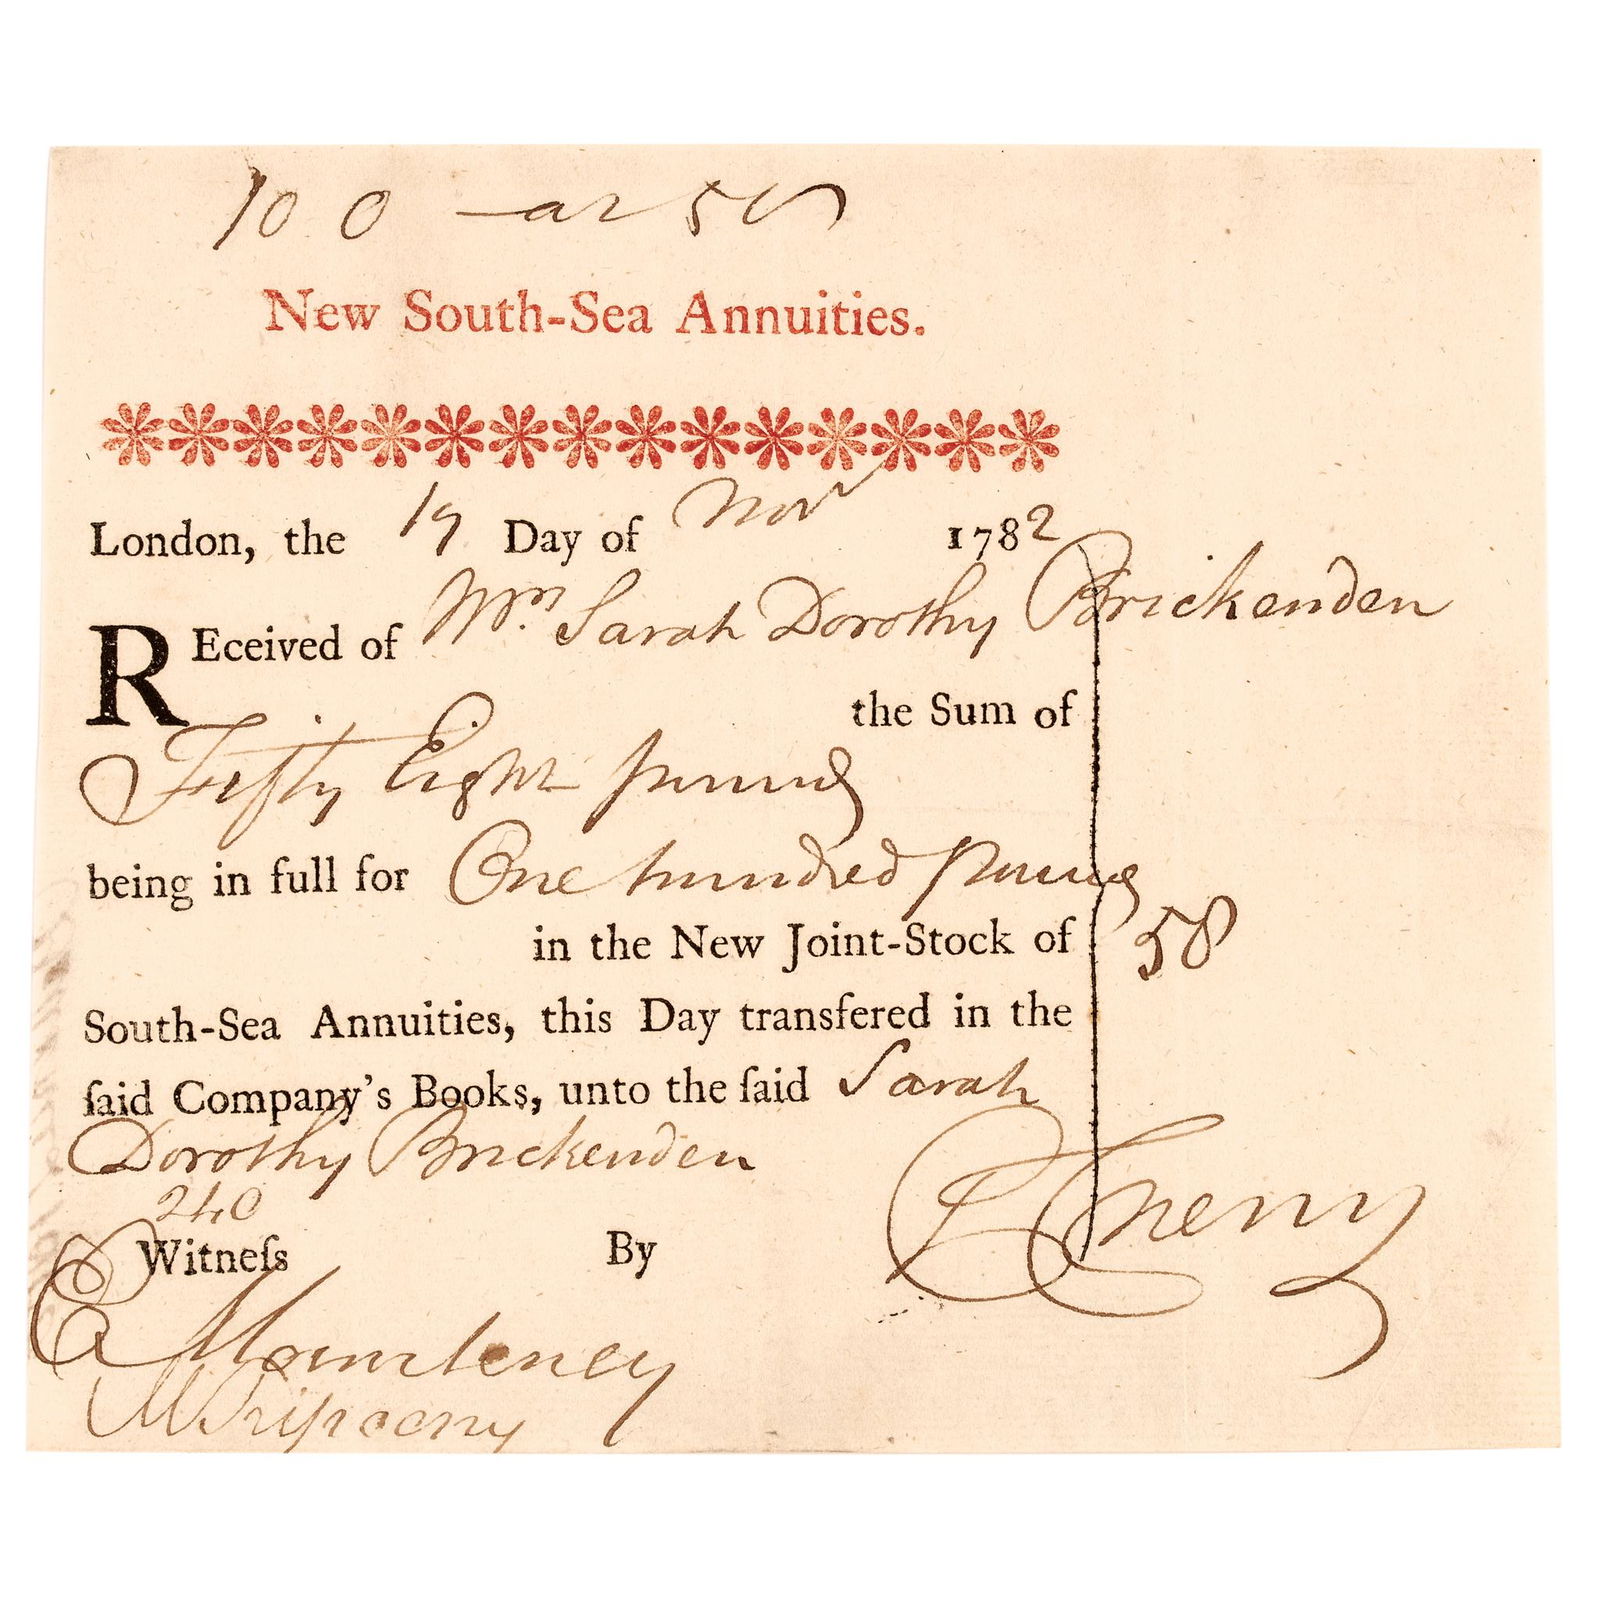 100 — at 58
New South-Sea Annuities.
London, the 19 Day of Novr 1782
REceived of Mrs. Sarah Dorothy Brickenden
the Sum of
Fifty Eight pounds
being in full for One hundred pounds
in the New Joint-Stock of
58
South-Sea Annuities, this Day transfered in the
ſaid Company's Books, unto the ſaid Sarah
Dorothy Brickenden
240
Witneſs By Cherry
Mourteney